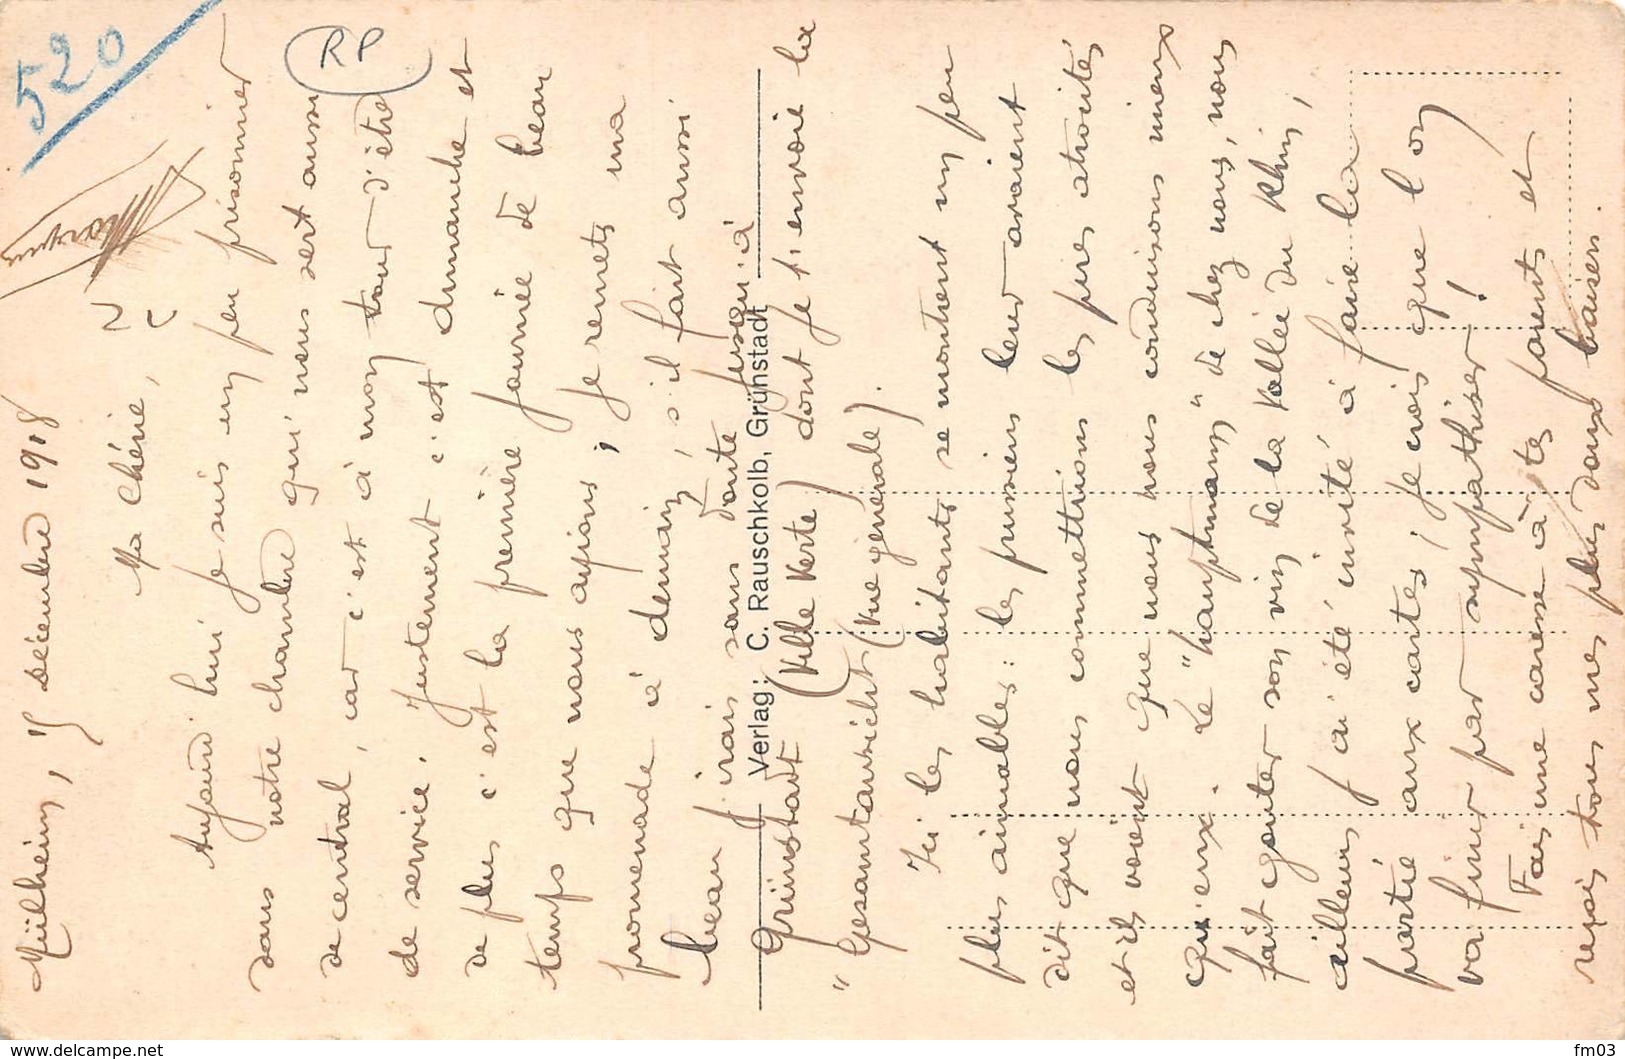 520
RP
Mülheim, 15 décembre 1918
Ma chérie,
Aujourd'hui je suis un peu prisonnier
dans notre chambre qui nous sert aussi
de central, car c'est à mon tour d'être
de service. Justement c'est dimanche et
de plus c'est la première journée de beau
temps que nous ayions ; je remets ma
promenade à demain, s'il fait aussi
beau j'irais sans doute jusqu'à
Grünstadt (Ville Verte) dont je t'envoie la
"Gesamtansicht (Vue générale).
Ici les habitants se montrent un peu
plus aimables : les prussiens leur avaient
dit que nous commettrions les pires atrocités
et ils voient que nous nous conduisons mieux
qu'eux. Le "hauptmann" de chez nous, nous
fait goûter son vin de la Vallée du Rhin,
ailleurs j'ai été invité à faire la
partie aux cartes ; je crois que l'on
va finir par sympathiser !
Fais une caresse à tes parents et
reçois tous mes plus doux baisers.
Verlag: C. Rauschkolb, Grünstadt
www.delcampe.net
fm03